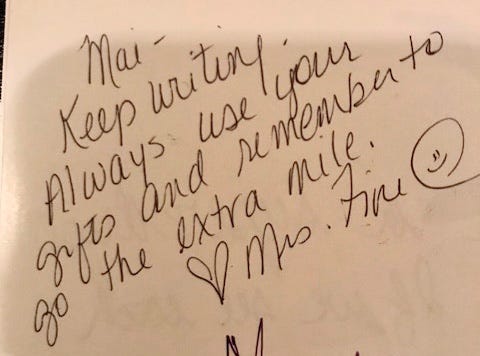 Mai-
Keep writing.
Always use your
gifts and remember to
go the extra mile.
♡ Mrs. Fine ☺